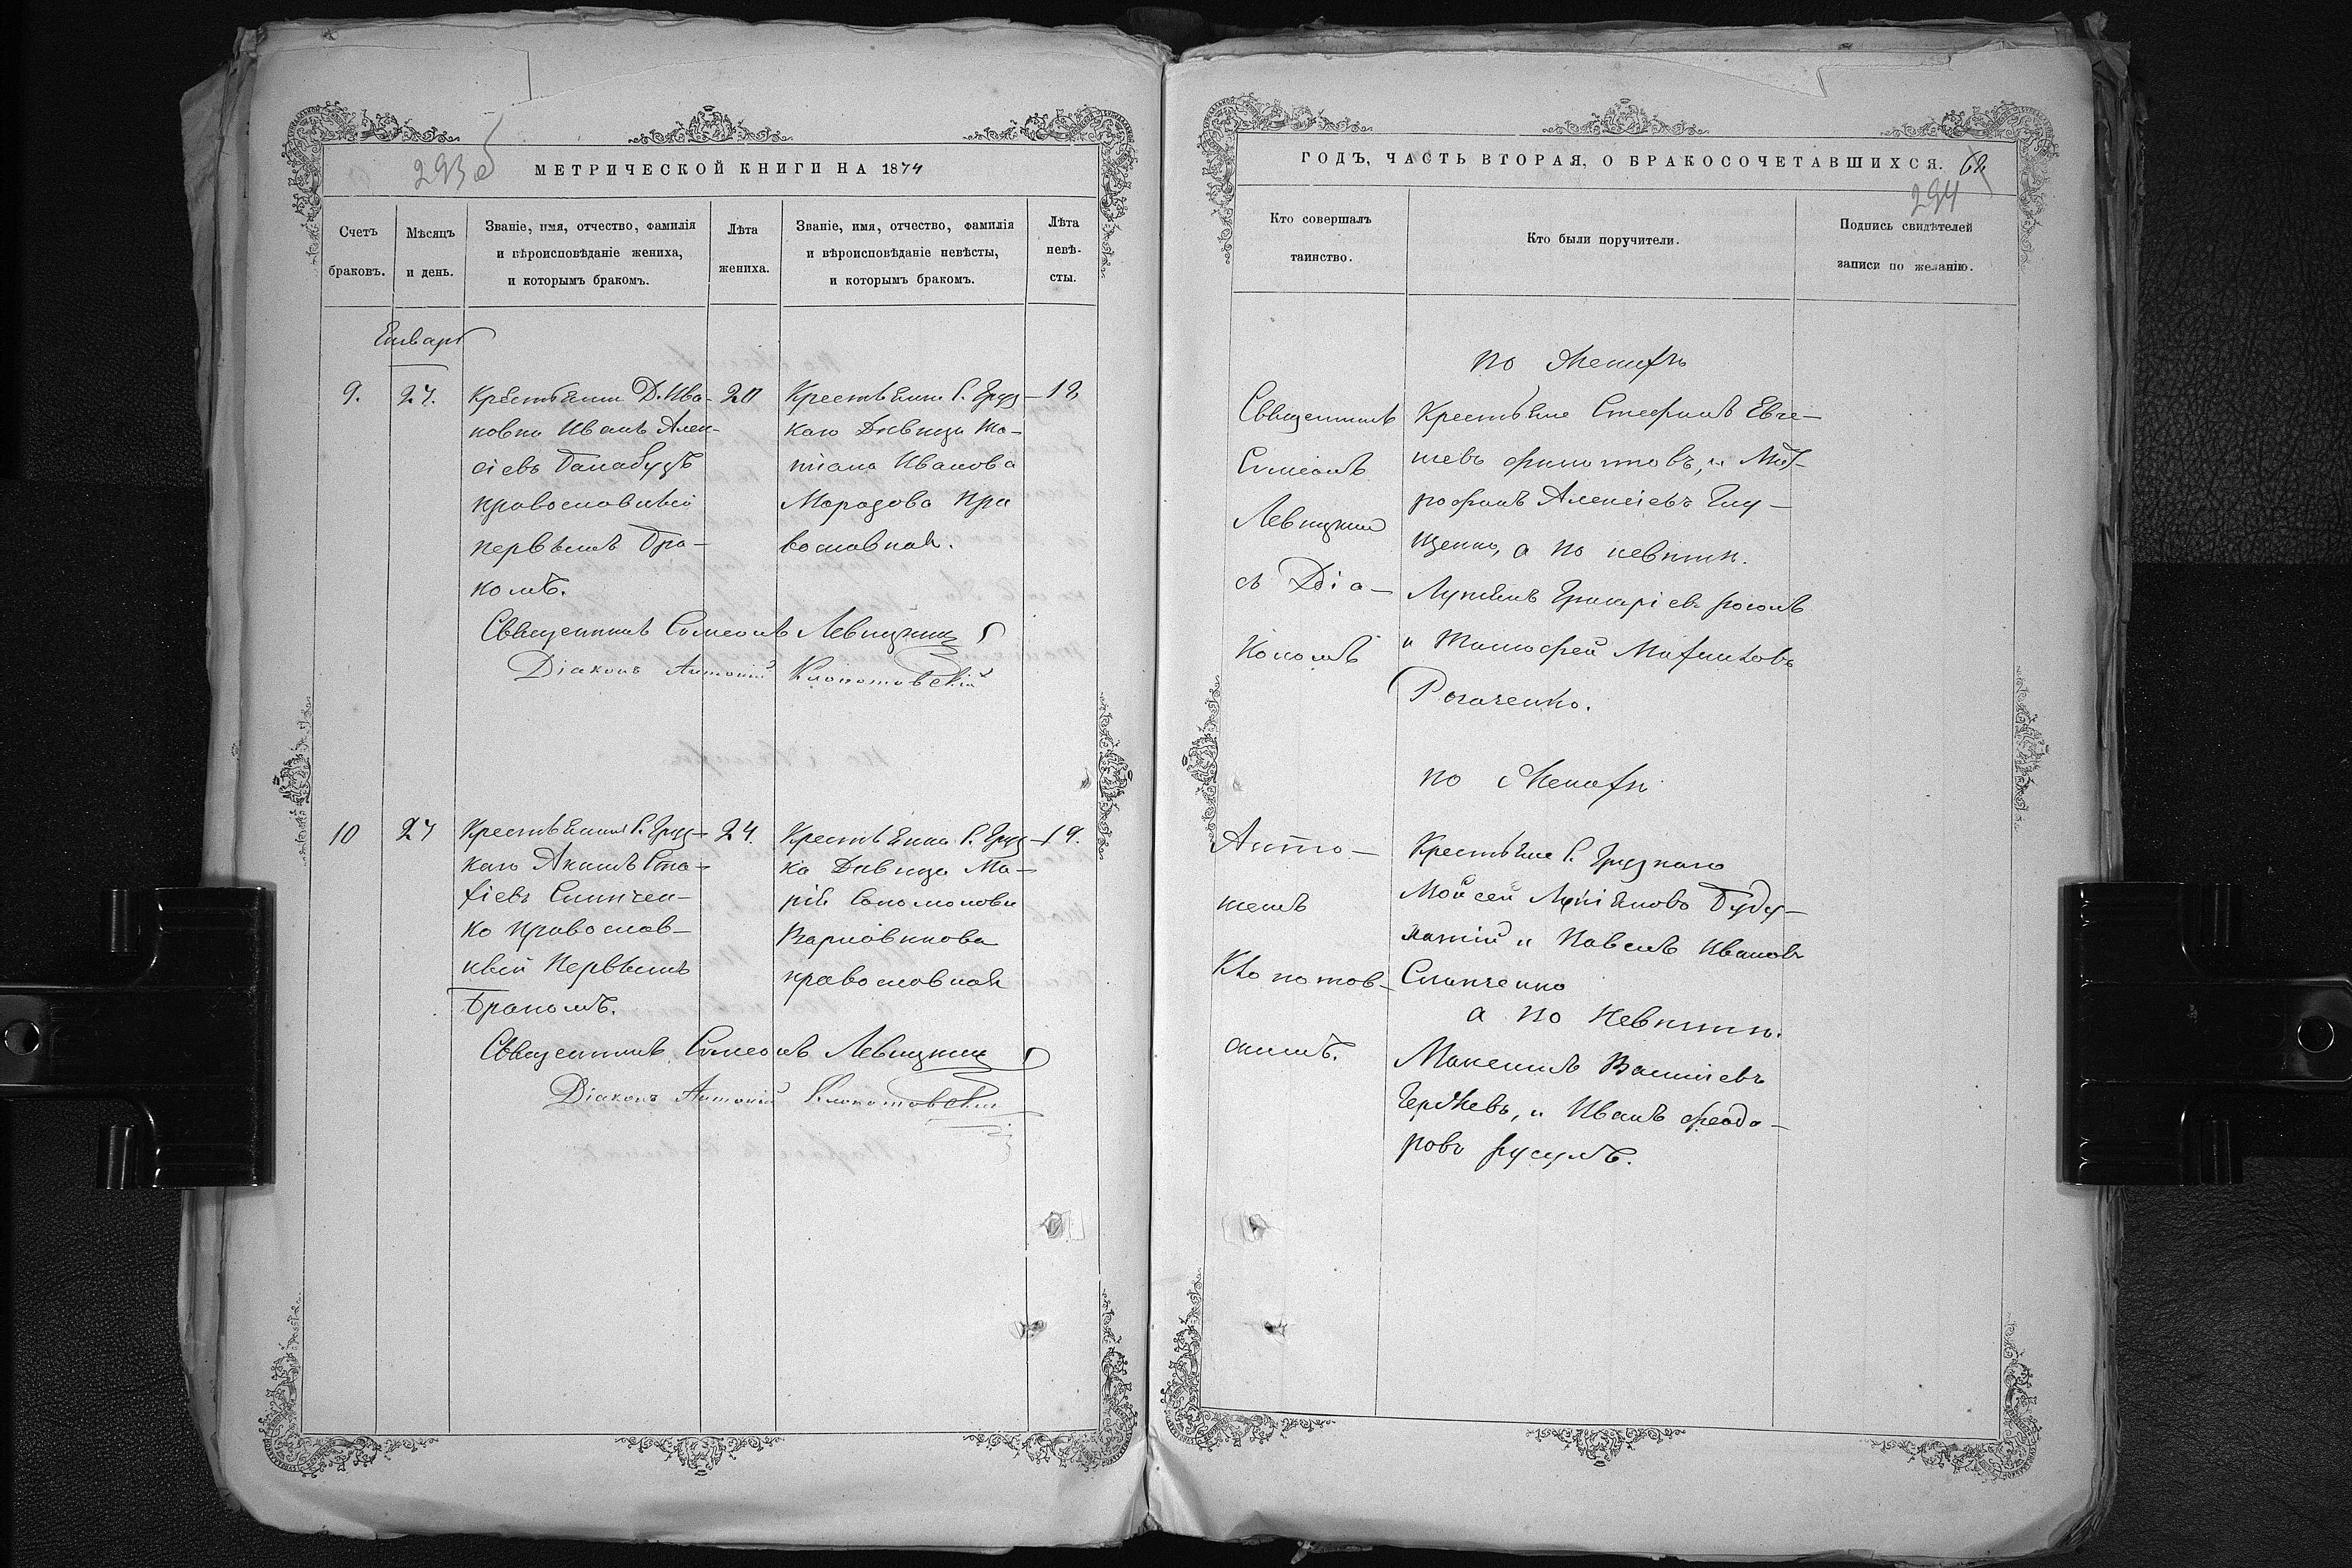 293 об
МЕТРИЧЕСКОЙ КНИГИ НА 1874
Счетъ браковъ.
Мѣсяцъ и день.
Званіе, имя, отчество, фамилія
и вѣроисповѣданіе жениха,
и которымъ бракомъ.
Лѣта жениха.
Званіе, имя, отчество, фамилія
и вѣроисповѣданіе невѣсты,
и которымъ бракомъ.
Лѣта невѣ-
сты.
Енварь
9.
27.
Крестьянин Д. Ива-
новки Иванъ Алек-
сіевъ Балабуха
православный
первымъ бра-
комъ.
20
Крестьянка С. Груз-
каго Дѣвица Та-
тіана Иванова
Морозова пра
вославная.
18
Священникъ Симеонъ Левицкій
Діаконъ Антоній Клопотовскій
10
27
Крестьянинъ С. Груз-
каго Акимъ
Слипчен-
ко православ-
ный первымъ
бракомъ.
24.
Крестьянка С. Груз-
ка Дѣвица Ма-
рія Соломонова
православная
19.
Священникъ Симеонъ Левицкій
Діаконъ Антоній Клопотовскій
ГОДЪ, ЧАСТЬ ВТОРАЯ, О БРАКОСОЧЕТАВШИХСЯ.
294
Кто совершалъ
таинство.
Кто были поручители.
Подпись свидѣтелей
записи по желанію.
Священникъ
Симеонъ
Левицкий
съ Діа-
кономъ
по женихѣ
Крестьяне Стефанъ Евге-
ніевъ Филиповъ, и Мит-
рофанъ Алексіевъ
а по невѣсти.
Лукіянъ Григоріевъ
и Тимофей
Рогаченко.
по женихѣ
Анто-
ніемъ
Клопотов-
скимъ.
Крестьяне С. Грузкаго
Мойсей Лукіяновъ Буду-
и Павелъ Ивановъ
Слипченко
а по невѣсти.
Максимъ Василіевъ
и Иванъ Феодо-
ровъ